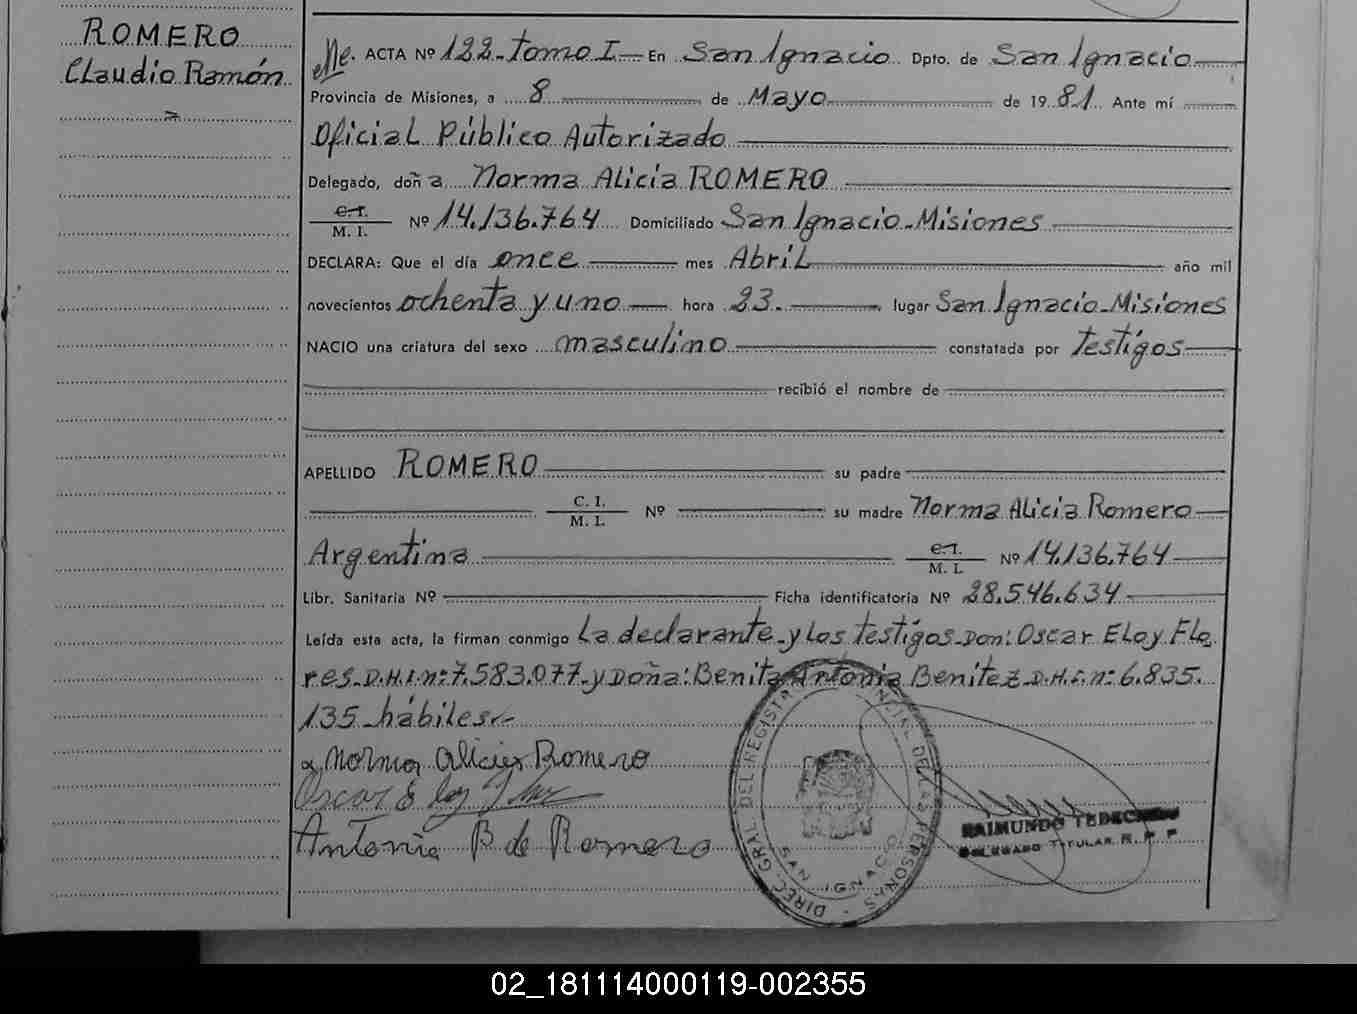 ROMERO
Claudio Ramón
ACTA Nº 122-tomo I- En San Ignacio Dpto. de San Ignacio
Provincia de Misiones, a 8 de Mayo de 1981 Ante mí
Oficial Público Autorizado
Delegado, doña Norma Alicia ROMERO
C.I. M. I. Nº 14.136.764 Domiciliado San Ignacio-Misiones
DECLARA: Que el día once mes Abril año mil
novecientos ochenta y uno hora 23. lugar San Ignacio-Misiones
NACIO una criatura del sexo masculino constatada por testigos
recibió el nombre de
APELLIDO ROMERO su padre
C. I. M. I. Nº su madre Norma Alicia Romero
Argentina C.I. M. I. Nº 14.136.764
Libr. Sanitaria Nº Ficha identificatoria Nº 28.546.634
Leída esta acta, la firman conmigo La declarante-y Los testigos-Don: Oscar Eloy Flo
res-D.N.I.nº:7.583.077-y Doña: Benita Antonia Benitez D.N.I.nº:6.835.
135-hábiles.-
Norma Alicia Romero
Oscar Eloy
Antonia B de Romero
DIREC. GRAL. DEL REGISTRO PROVINCIAL DE LAS PERSONAS
SAN IGNACIO
RAIMUNDO
DELEGADO TITULAR R. P. P
02_181114000119-002355